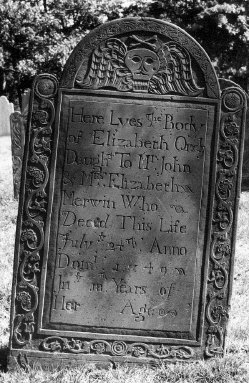 Here Lyes The Body
of Elizabeth
Daugtr To Mr John
& Mrs Elizabeth
Merwin Who
Decd This Life
July 24th Anno
Domi 1749
In ye Years of
Her Age